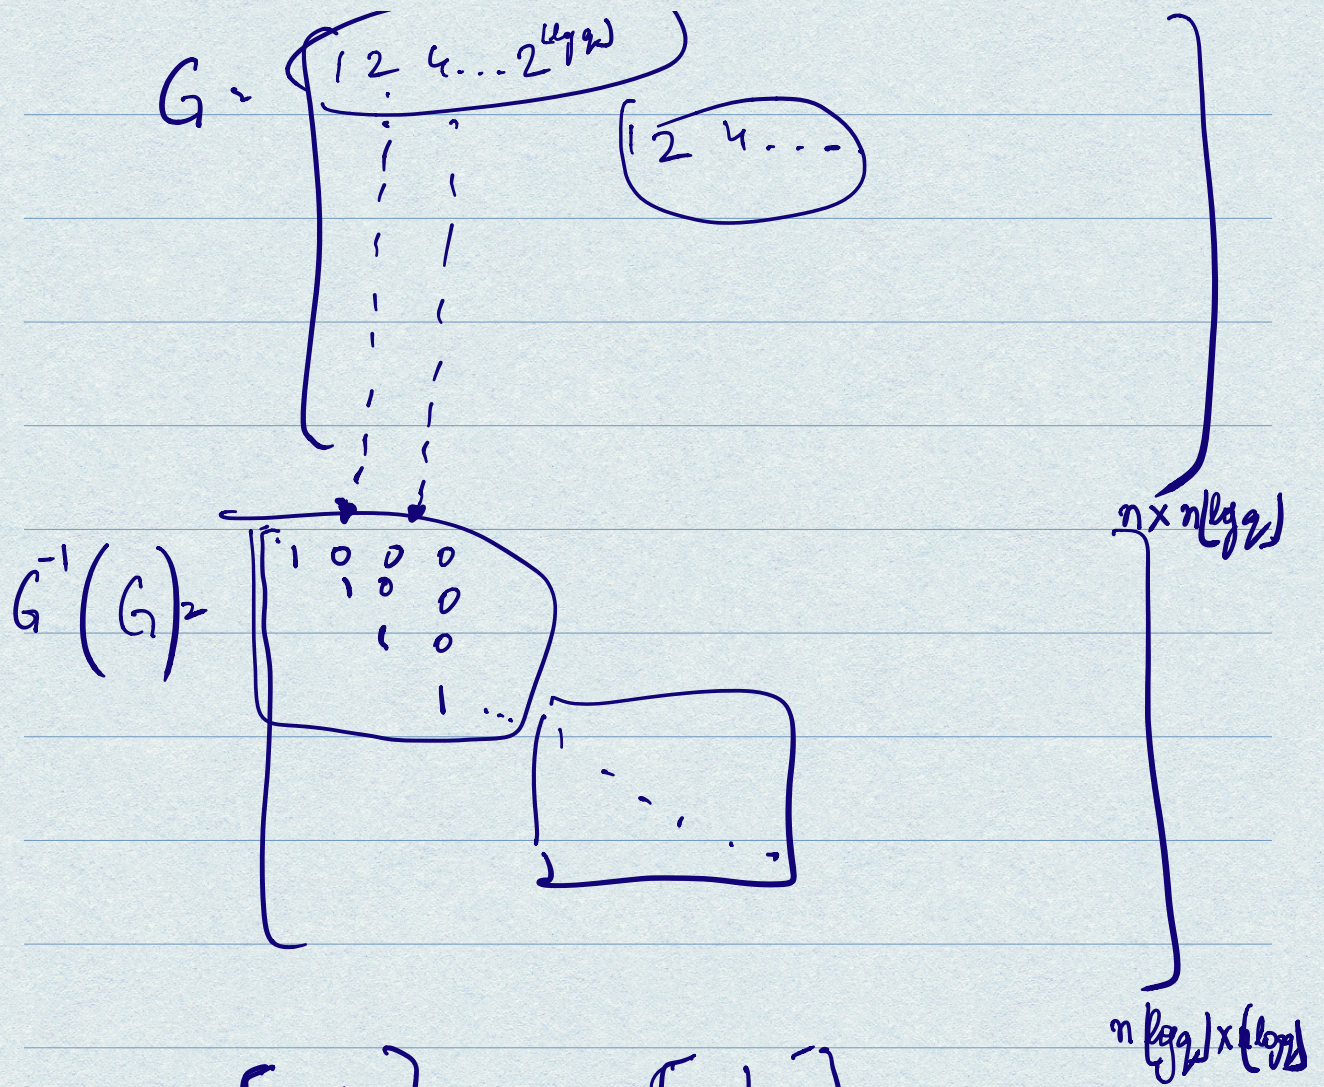 G = [ 1 2 4 .... 2^⌊log q⌋
1 2 4 .... ]
n × n⌊log q⌋
G^-1 (G) = [ 1 0 0 0
1 0 0
1 0
1 ...
1 ..... ]
n⌊log q⌋ × n⌊log q⌋